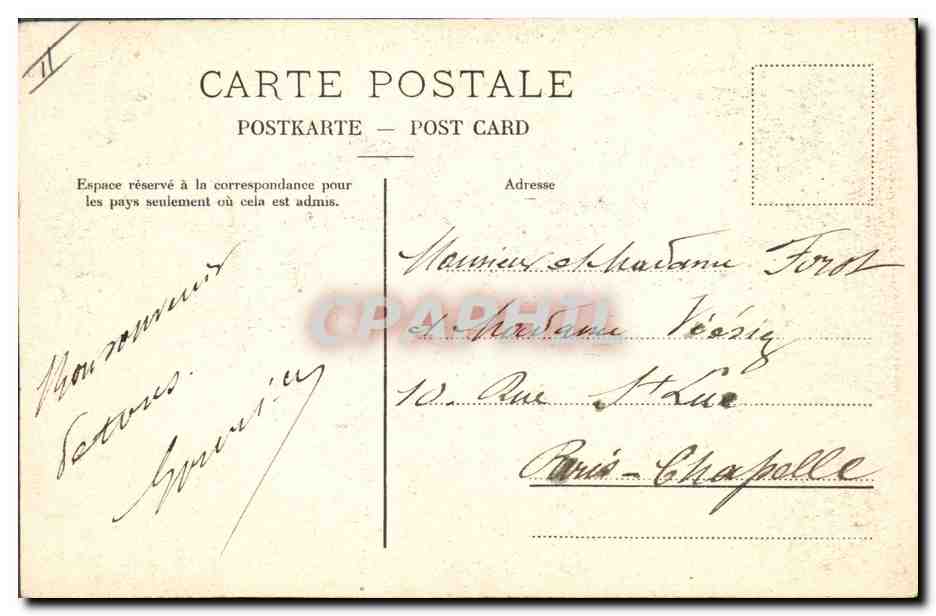 II
CARTE POSTALE
POSTKARTE — POST CARD
Espace réservé à la correspondance pour
les pays seulement où cela est admis.
Adresse
Bon souvenir
de tous.
Monsieur et Madame Forot
et Madame
10. Rue St Luc
Paris-Chapelle
CPAPHIL